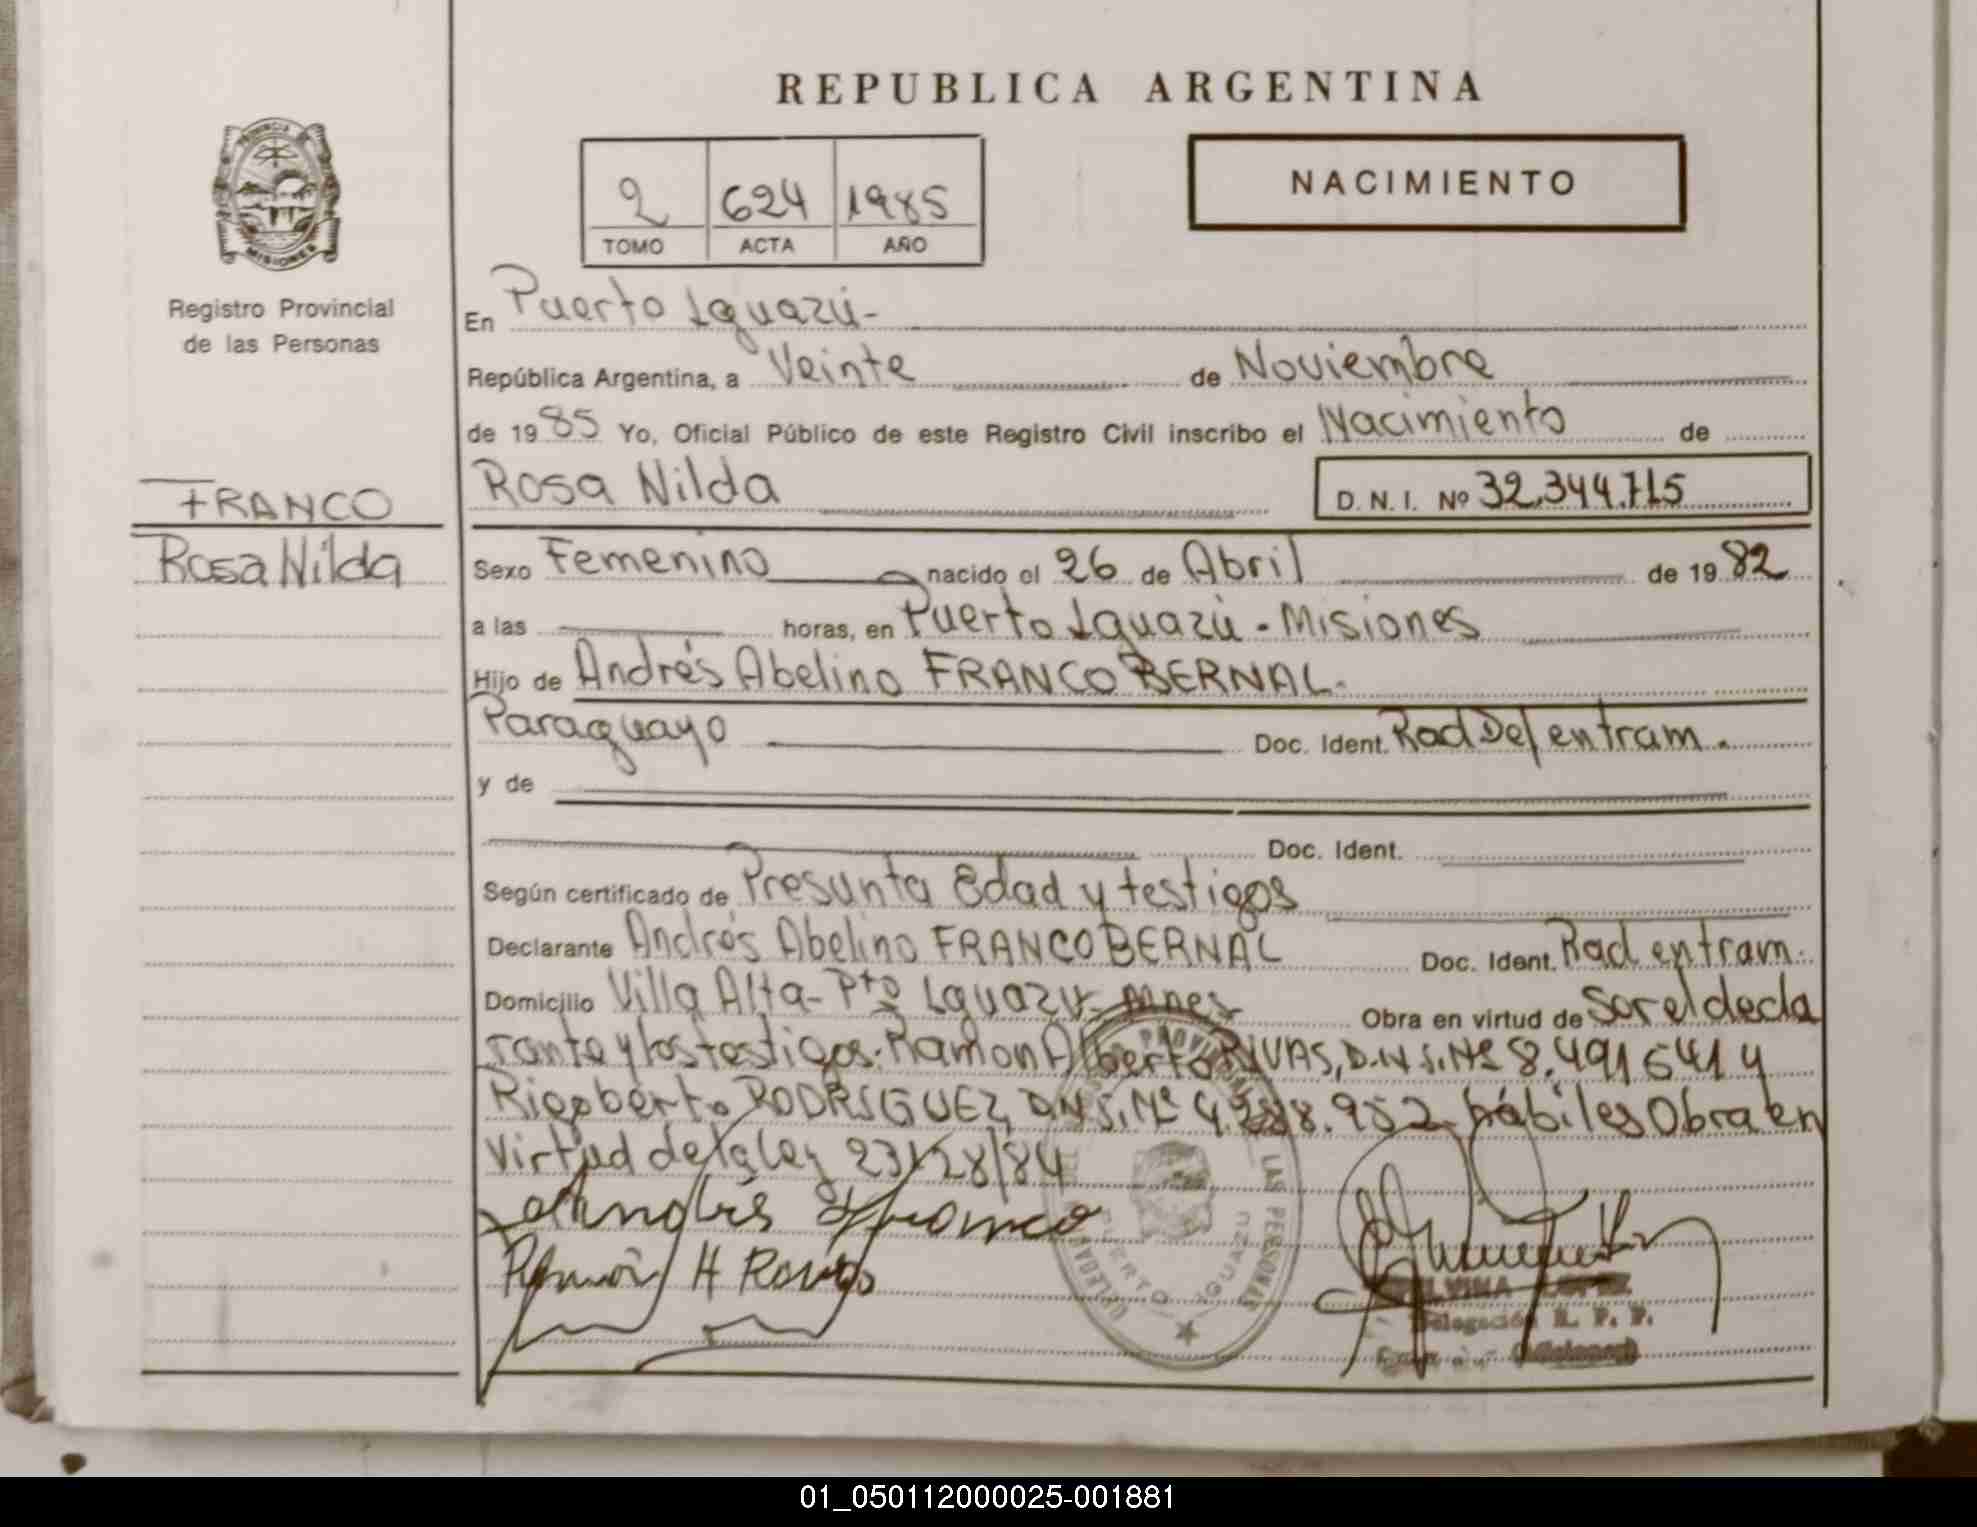 REPUBLICA ARGENTINA
PROVINCIA
MISIONES
Registro Provincial
de las Personas
2 624 1985
TOMO ACTA AÑO
NACIMIENTO
En Puerto Iguazú-
República Argentina, a Veinte de Noviembre
de 1985 Yo, Oficial Público de este Registro Civil inscribo el Nacimiento de
FRANCO
Rosa Nilda
Rosa Nilda D.N.I. Nº 32.344.715
Sexo Femenino nacido el 26 de Abril de 1982
a las horas, en Puerto Iguazú - Misiones
Hijo de Andrés Abelino FRANCO BERNAL.
Paraguayo Doc. Ident. Rad Def entram.
y de
Doc. Ident.
Según certificado de Presunta Edad y testigos
Declarante Andrés Abelino FRANCO BERNAL Doc. Ident. Rad entram.
Domicilio Villa Alta- Pto Iguazú- Mnes Obra en virtud de Ser el decla
rante y los testigos: Ramon Alberto RIVAS, D.N.I. Nº 8.491641 y
Rigoberto RODRIGUEZ, D.N.I. Nº 4.288.952 hábiles Obra en
virtud de la ley 23128/84
Andrés Franco
PUERTO IGUAZU
LAS PERSONAS
LOPEZ
Delegación R. P. P.
01_050112000025-001881